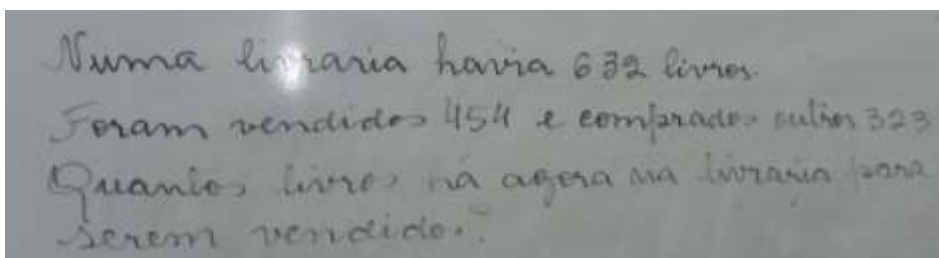 Numa livraria havia 632 livros.
Foram vendidos 454 e comprados outros 323
Quantos livros há agora na livraria para
serem vendidos?